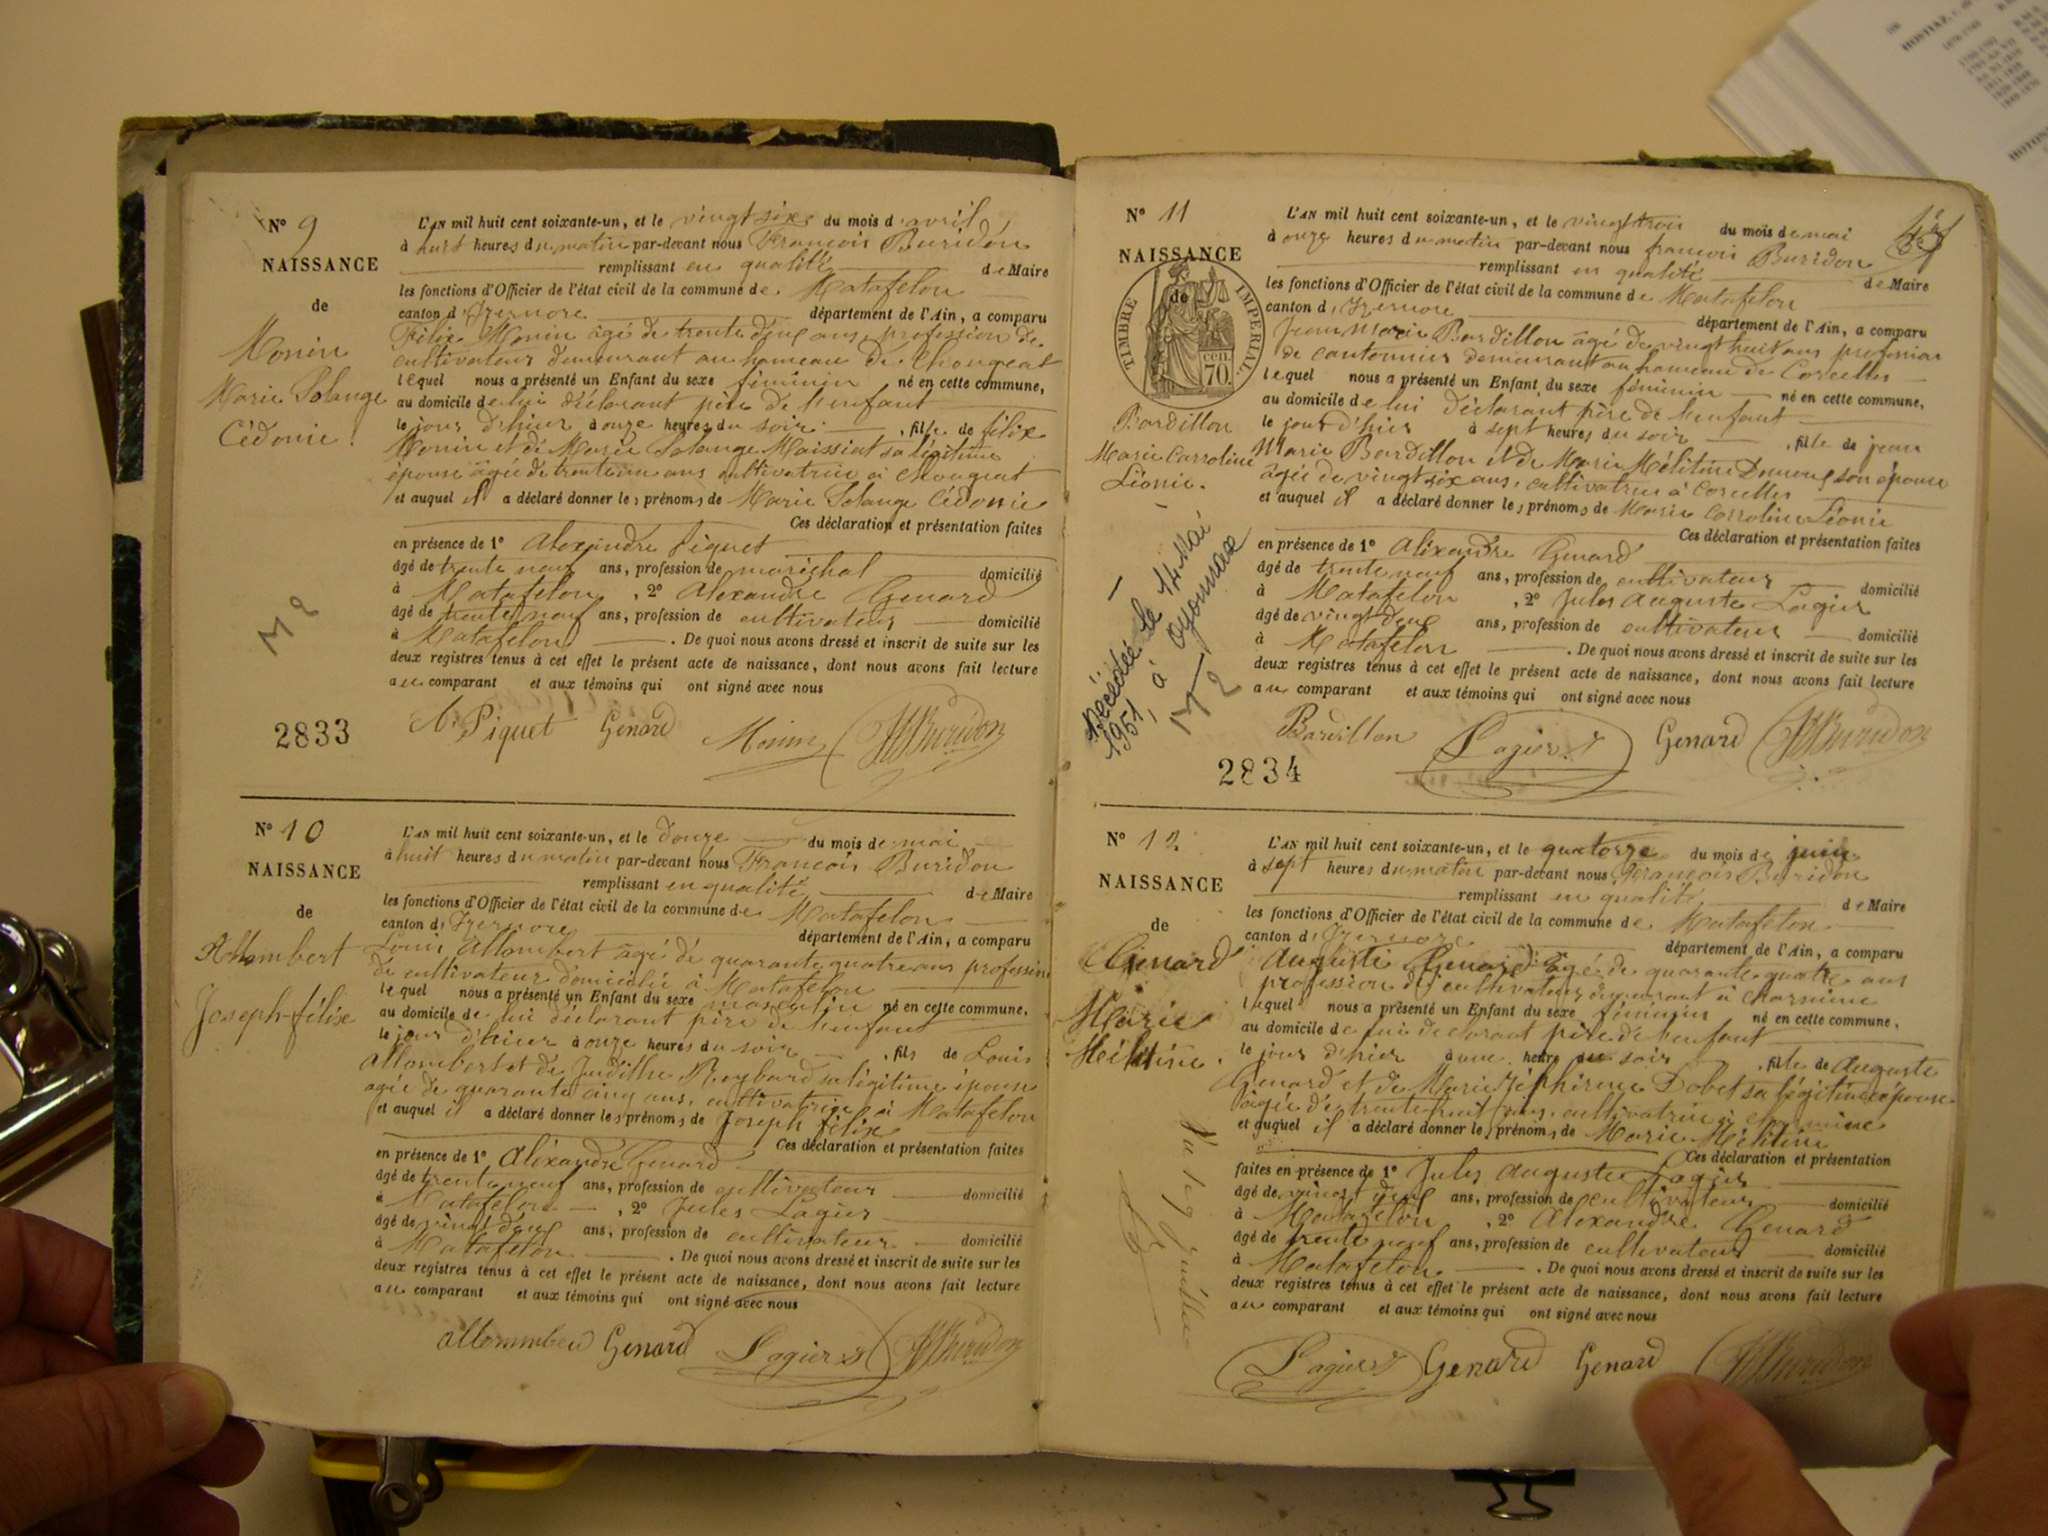 N° 9
NAISSANCE
de
Monin
Marie Solange
Cédonie.
L'AN mil huit cent soixante-un, et le vingt six du mois d'avril
à huit heures du matin par-devant nous François Buridon
remplissant en qualité de Maire
les fonctions d'Officier de l'état civil de la commune de Matafelon
canton d'Izernore département de l'Ain, a comparu
Félix Monin âgé de trente deux ans, profession de
cultivateur demeurant au hameau de Chougeat
lequel nous a présenté un Enfant du sexe féminin né en cette commune,
au domicile de lui déclarant père de l'enfant
le jour d'hier à onze heures du soir, fille de félix
Monin et de Marie Solange Maissiat sa légitime
épouse âgée de trente un ans cultivatrice à Chougeat
et auquel il a déclaré donner les prénoms de Marie Solange Cédonie
Ces déclaration et présentation faites
en présence de 1° Alexandre Piquet
âgé de trente neuf ans, profession de maréchal domicilié
à Matafelon, 2° Alexandre Genard
âgé de trente neuf ans, profession de cultivateur domicilié
à Matafelon. De quoi nous avons dressé et inscrit de suite sur les
deux registres tenus à cet effet le présent acte de naissance, dont nous avons fait lecture
au comparant et aux témoins qui ont signé avec nous
M 2
2833
A. Piquet Genard Monin Buridon
N° 10
NAISSANCE
de
Allombert
Joseph-félix
L'AN mil huit cent soixante-un, et le douze du mois de mai
à huit heures du matin par-devant nous François Buridon
remplissant en qualité de Maire
les fonctions d'Officier de l'état civil de la commune de Matafelon
canton d'Izernore département de l'Ain, a comparu
Louis Allombert âgé de quarante quatre ans profession
de cultivateur domicilié à Matafelon
lequel nous a présenté un Enfant du sexe masculin né en cette commune,
au domicile de lui déclarant père de l'enfant
le jour d'hier à onze heures du soir, fils de Louis
Allombert et de Judithe Reybard sa légitime épouse
âgée de quarante cinq ans, cultivatrice à Matafelon
et auquel il a déclaré donner les prénoms de Joseph félix
Ces déclaration et présentation faites
en présence de 1° Alexandre Genard
âgé de trente neuf ans, profession de cultivateur domicilié
à Matafelon, 2° Jules Lagier
âgé de vingt deux ans, profession de cultivateur domicilié
à Matafelon. De quoi nous avons dressé et inscrit de suite sur les
deux registres tenus à cet effet le présent acte de naissance, dont nous avons fait lecture
au comparant et aux témoins qui ont signé avec nous
Genard Lagier Buridon
N° 11
NAISSANCE
de
TIMBRE IMPERIAL
70. cen
Bardillon
Marie Carroline
Léonie.
Décédée le 14 Mai
1951 à Oyonnax
M 2
L'AN mil huit cent soixante-un, et le vingt trois du mois de mai
à onze heures du matin par-devant nous françois Buridon
remplissant en qualité de Maire
les fonctions d'Officier de l'état civil de la commune de Matafelon
canton d'Izernore département de l'Ain, a comparu
Jean Marie Bardillon âgé de vingt huit ans profession
de cantonnier demeurant au hameau de Corcelles
lequel nous a présenté un Enfant du sexe féminin né en cette commune,
au domicile de lui déclarant père de l'enfant
le jour d'hier à sept heures du soir, fille de jean
Marie Bardillon et de Marie Mélitine son épouse
âgée de vingt six ans, cultivatrice à Corcelles
et auquel il a déclaré donner les prénoms de Marie Carroline Léonie
Ces déclaration et présentation faites
en présence de 1° Alixandre Genard
âgé de trente neuf ans, profession de cultivateur domicilié
à Matafelon, 2° Jules Auguste Lagier
âgé de vingt deux ans, profession de cultivateur domicilié
à Matafelon. De quoi nous avons dressé et inscrit de suite sur les
deux registres tenus à cet effet le présent acte de naissance, dont nous avons fait lecture
au comparant et aux témoins qui ont signé avec nous
Bardillon Lagier Genard Buridon
2834
N° 12
NAISSANCE
de
Genard
Marie
Mélitine.
L'AN mil huit cent soixante-un, et le quatorze du mois de juin
à sept heures du matin par-devant nous François Buridon
remplissant en qualité de Maire
les fonctions d'Officier de l'état civil de la commune de Matafelon
canton d'Izernore département de l'Ain, a comparu
Auguste Genard âgé de quarante quatre ans
profession de cultivateur demeurant à Charmine
lequel nous a présenté un Enfant du sexe féminin né en cette commune,
au domicile de lui déclarant père de l'enfant
le jour d'hier à une heure du soir, fille de Auguste
Genard et de Marie Zéphirine Dobet sa légitime épouse
âgée de trente huit ans, cultivatrice à Charmine
et auquel il a déclaré donner les prénoms de Marie Mélitine
Ces déclaration et présentation
faites en présence de 1° Jules Auguste Lagier
âgé de vingt deux ans, profession de cultivateur domicilié
à Matafelon, 2° Alexandre Genard
âgé de trente neuf ans, profession de cultivateur domicilié
à Matafelon. De quoi nous avons dressé et inscrit de suite sur les
deux registres tenus à cet effet le présent acte de naissance, dont nous avons fait lecture
au comparant et aux témoins qui ont signé avec nous
Lagier Genard Genard Buridon